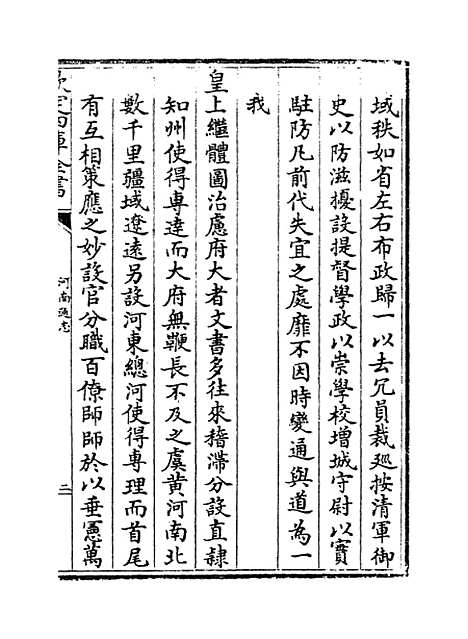 域秩如省左右布政歸一以去冗員裁廵按清軍御
史以防滋擾設提督學政以崇學校增城守尉以實
駐防凡前代失宜之處靡不因時變通與道為一
我
皇上繼體圖治慮府大者文書多往來稽滯分設直隸
知州使得專達而大府無鞭長不及之虞黄河南北
數千里疆域遼遠另設河東總河使得專理而首尾
有互相策應之妙設官分職百僚師師於以垂憲萬
欽定四庫全書
河南通志
二